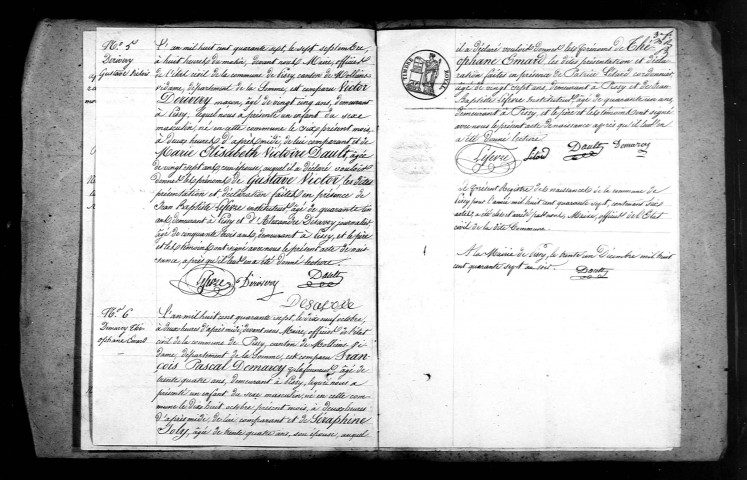 N.º 5
Derivery
Gustave Victor
L'an mil huit cent quarante sept, le sept septembre,
à huit heures du matin, devant nous Maire, officier de
l'état civil de la commune de Pissy canton de Molliens
vidame, département de la Somme, est comparu Victor
Derivery maçon, âgé de vingt cinq ans, demeurant
à Pissy, lequel nous a présenté un enfant du sexe
masculin, né en cette commune le six présent mois,
à deux heures d'après midi, de lui comparant et de
Marie Elisabeth Victoire Dault, âgée
de vingt sept ans, son épouse, auquel il a déclaré vouloir
donner les prénoms de Gustave Victor, les dites
présentation et déclaration faites en présence de
Jean Baptiste Lefevre instituteur, âgé de quarante un
ans demeurant à Pissy et d'Alexandre Désavoy journalier
âgé de cinquante trois ans, demeurant à Pissy, et le père
et les témoins ont signé avec nous le présent acte de nais-
sance, après qu'il leur en a été donné lecture.
Lefevre Derivery Dault
N.º 6
Demarcy Thé-
ophane Emard
L'an mil huit cent quarante sept, le dix neuf octobre,
à deux heures d'après midi, devant nous Maire, officier de l'état
civil de la commune de Pissy, canton de Molliens Vi-
dame, département de la Somme, est comparu Fran-
çois Pascal Demarcy âgé de
trente quatre ans, demeurant à Pissy, lequel nous a
présenté un enfant du sexe masculin, né en cette com-
mune le dix huit octobre présent mois, à deux heures
d'après midi, de lui comparant et de Séraphine
Joly, âgée de trente quatre ans, son épouse, auquel
il a déclaré vouloir donner les prénoms de Thé-
ophane Emard, les dites présentation et décla-
ration faites en présence de Patrice Létard cordonnier,
âgé de vingt sept ans, demeurant à Pissy et de Jean
Baptiste Lefevre Instituteur, âgé de quarante un ans
demeurant à Pissy, et le père et les témoins ont signé
avec nous le présent acte de naissance après qu'il leur en
a été donné lecture.
Lefevre Létard Dault Demarcy
Le présent Registre de naissances de la commune de
Pissy pour l'année mil huit cent quarante sept, contenant six
actes, a été clos et arrêté par nous, Maire, officier de l'état
civil de la dite Commune.
A la Mairie de Pissy, le trente un Décembre mil huit
cent quarante sept au soir.
Dault